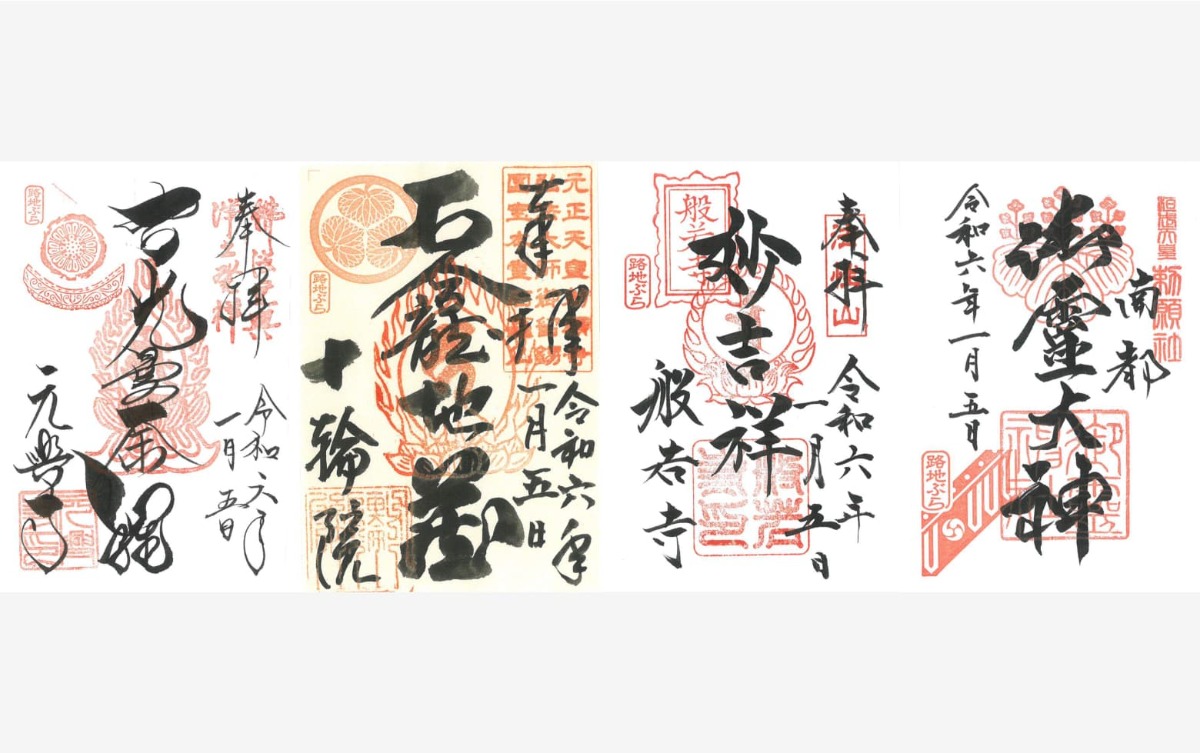 奉拝
令和六年
一月五日
智光曼荼羅
元興寺
路地ぶら
元正天皇
奉拝
令和六年
一月五日
石龕地蔵
十輪院
路地ぶら
奉拝
令和六年
一月五日
妙吉祥
般若寺
路地ぶら
勅願社
南都
御靈大神
令和六年一月五日
路地ぶら